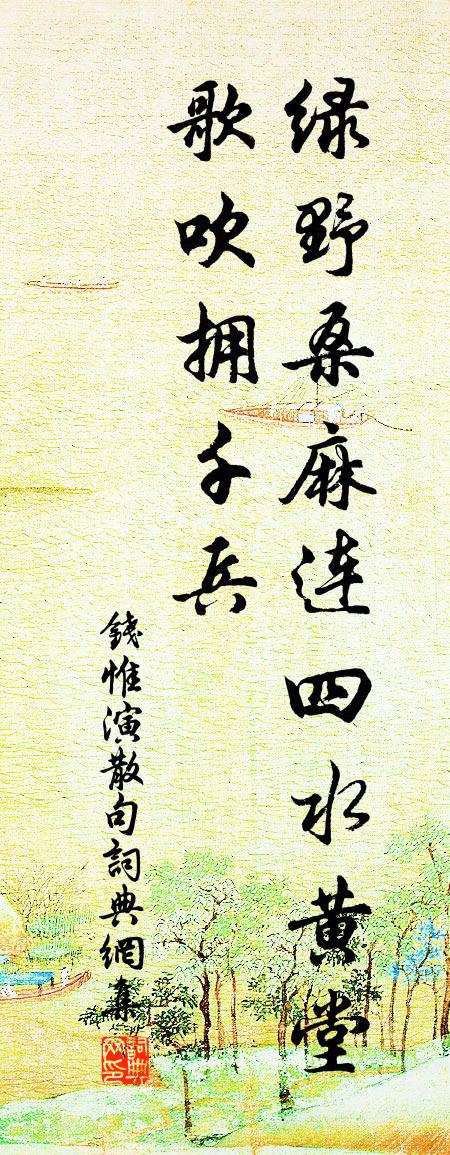 绿野桑麻连四水黄堂
歌吹拥千兵
錢惟演散句詞典網集